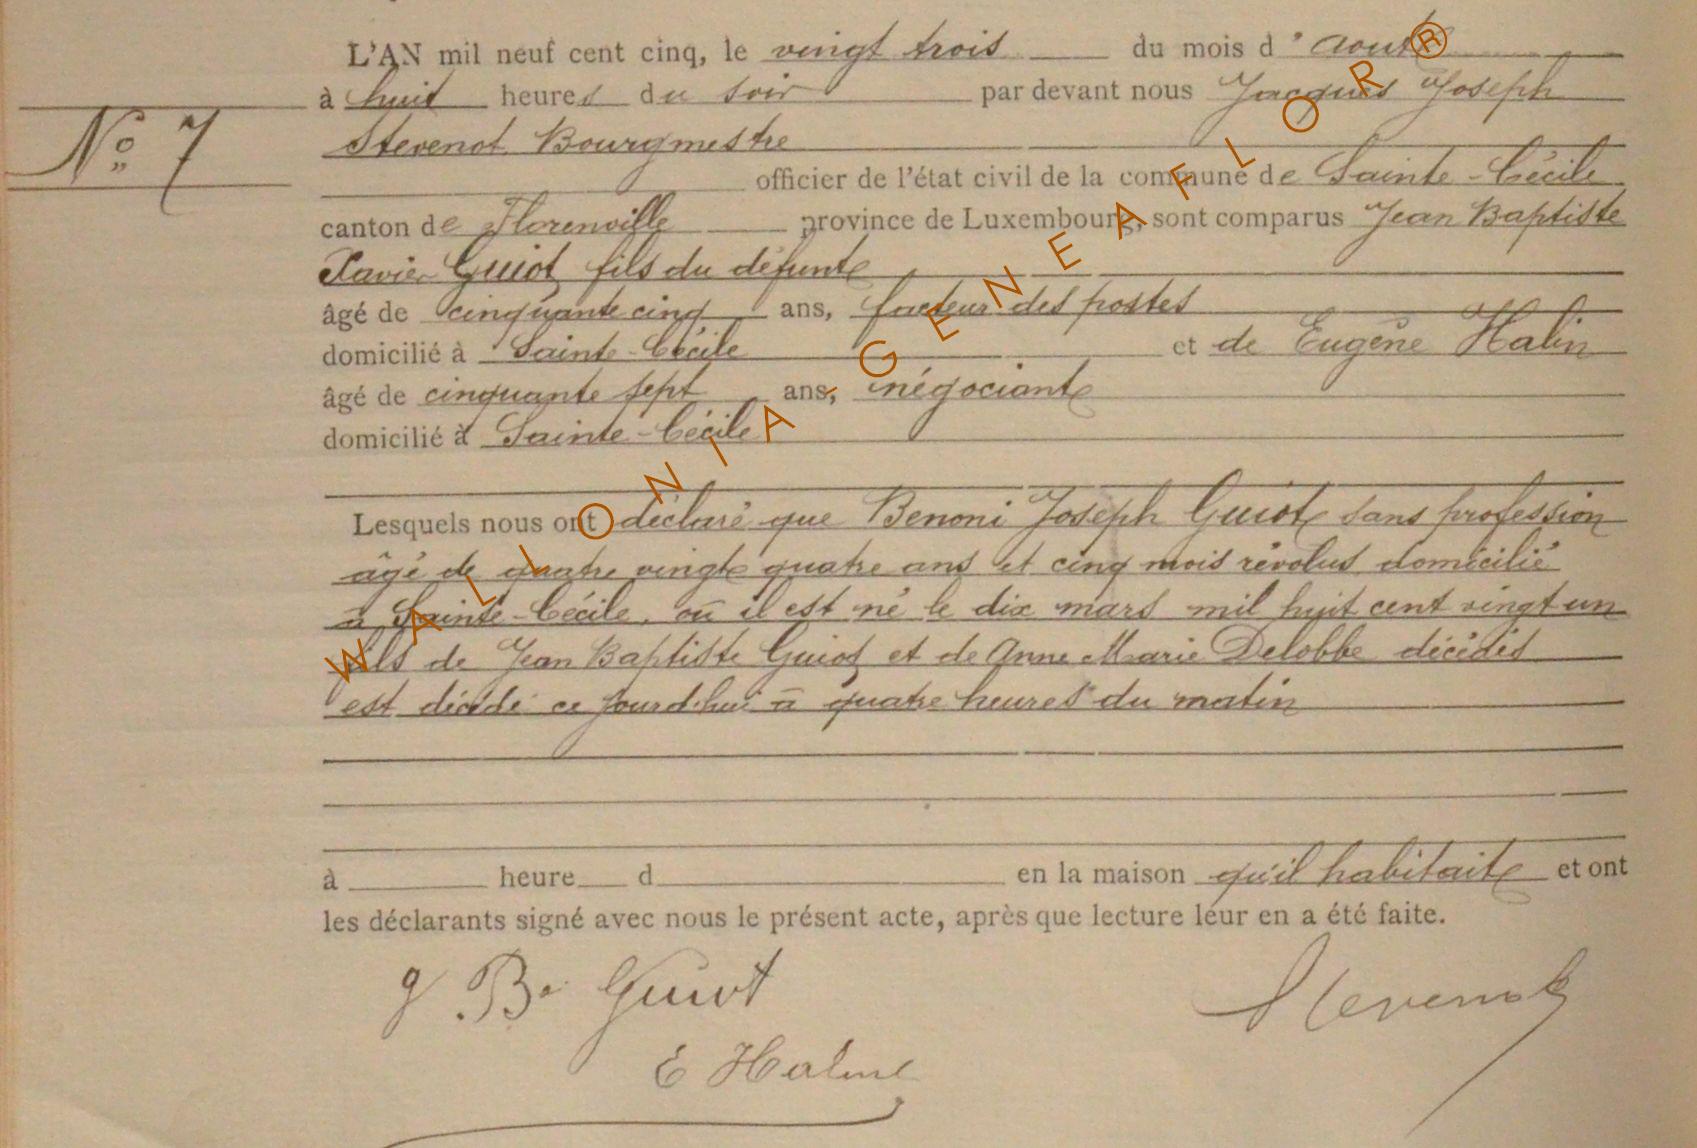 L'AN mil neuf cent cinq, le vingt trois du mois d'août
à huit heures du soir par devant nous Jacques Joseph
N° 7
Stevenot Bourgmestre
officier de l'état civil de la commune de Sainte-Cécile
canton de Florenville province de Luxembourg, sont comparus Jean Baptiste
Xavier Guiot fils du défunt
âgé de cinquante cinq ans, facteur des postes
domicilié à Sainte-Cécile et de Eugène Halin
âgé de cinquante sept ans, négociant
domicilié à Sainte-Cécile
Lesquels nous ont déclaré que Benoni Joseph Guiot sans profession
âgé de quatre vingt quatre ans et cinq mois révolus domicilié
à Sainte-Cécile, où il est né le dix mars mil huit cent vingt un
fils de Jean Baptiste Guiot et de Anne Marie Delobbe décédés
est décédé ce jourd'hui à quatre heures du matin
à heure d en la maison qu'il habitait et ont
les déclarants signé avec nous le présent acte, après que lecture leur en a été faite.
J. Bte Guiot
Stevenot
E Halin
WALLONIA - GENEAFLOR ®